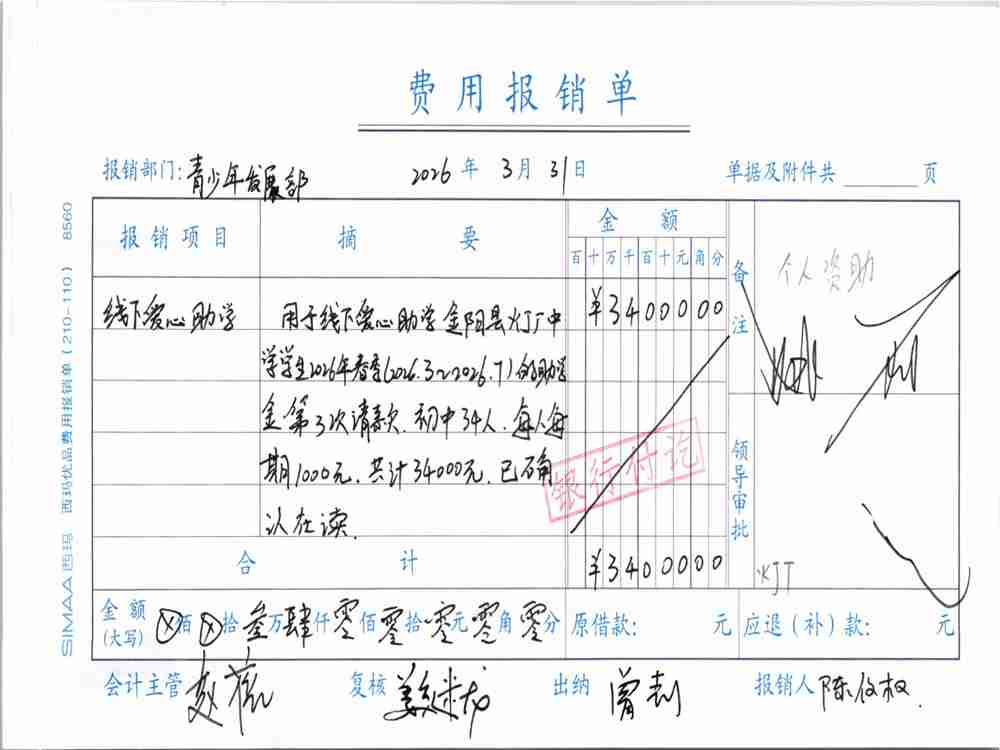 费用报销单
报销部门: 青少年发展部 2026 年 3 月 31 日 单据及附件共 页
报销项目 摘 要 金 额 备注 个人资助
百 十 万 千 百 十 元 角 分
线下爱心助学 用于线下爱心助学金阳县灯厂中 ¥3400000
学学生2026年春季(2026.3~2026.7)的助学
金第3次请款.初中34人.每人每
期1000元.共计34000元.已确
认在读.
银行付讫
领导审批
合 计 ¥3400000
KJT
金额(大写) ⊗佰⊗拾叁万肆仟零佰零拾零元零角零分 原借款: 元 应退(补)款: 元
会计主管 复核 出纳 曾 报销人 陈
SIMAA 西玛 西玛优品费用报销单(210-110) 8560